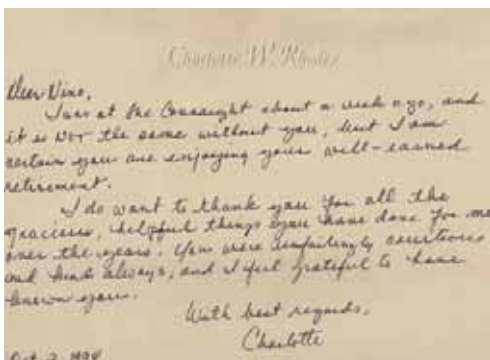 Charlotte W. Rhodes
Dear Nino,
I was at the Connaught about a week ago, and
it is not the same without you, but I am
certain you are enjoying your well-earned
retirement.
I do want to thank you for all the
gracious, helpful things you have done for me
over the years. You were unfailingly courteous
and kind always, and I feel grateful to have
known you.
With best regards,
Charlotte
Oct 2, 1998